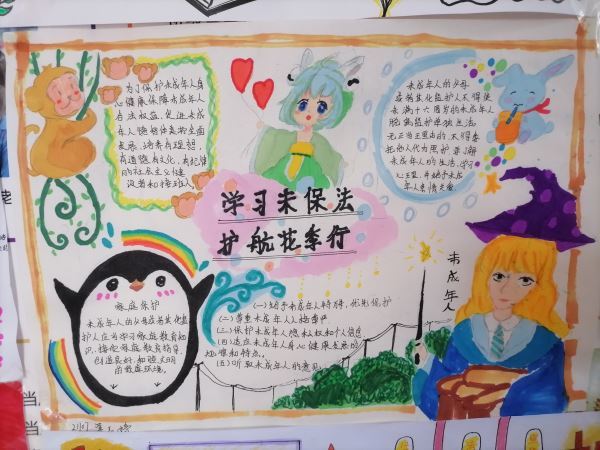 为了保护未成年人身
心健康保障未成年人
合法权益,促进未成
年人德智体美劳全面
发展,培养有理想、
有道德、有文化、有纪律
的社会主义建
设者和接班人,
未成年人的父母
或者其他监护人不得使
未满十六周岁的未成年人
脱离监护单独生活,
无正当理由的,不得委
托他人代为照护
未成年人的生活、学习
心理
学习未保法
护航花季行
未成年人
家庭保护
未成年人的父母或者其他监
护人应当学习家庭教育知
识,接受家庭教育指导,
创造良好、和睦、文明
的家庭环境。
(一)给予未成年人特殊、优先保护
(二)尊重未成年人人格尊严
(三)保护未成年人隐私权和个人信息
(四)适应未成年人身心健康发展的
规律和特点。
(五)听取未成年人的意见
当
当